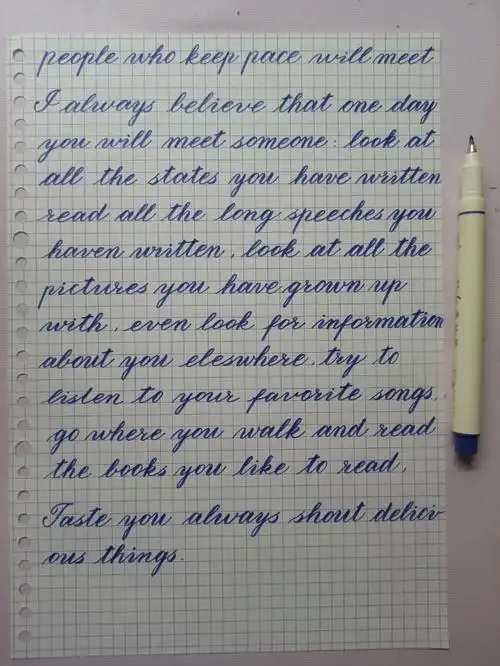 people who keep pace will meet
I always believe that one day
you will meet someone: look at
all the states you have written
read all the long speeches you
haven written, look at all the
pictures you have grown up
with, even look for information
about you eleswhere, try to
listen to your favorite songs,
go where you walk and read
the books you like to read,
Taste you always shout delici
ous things.